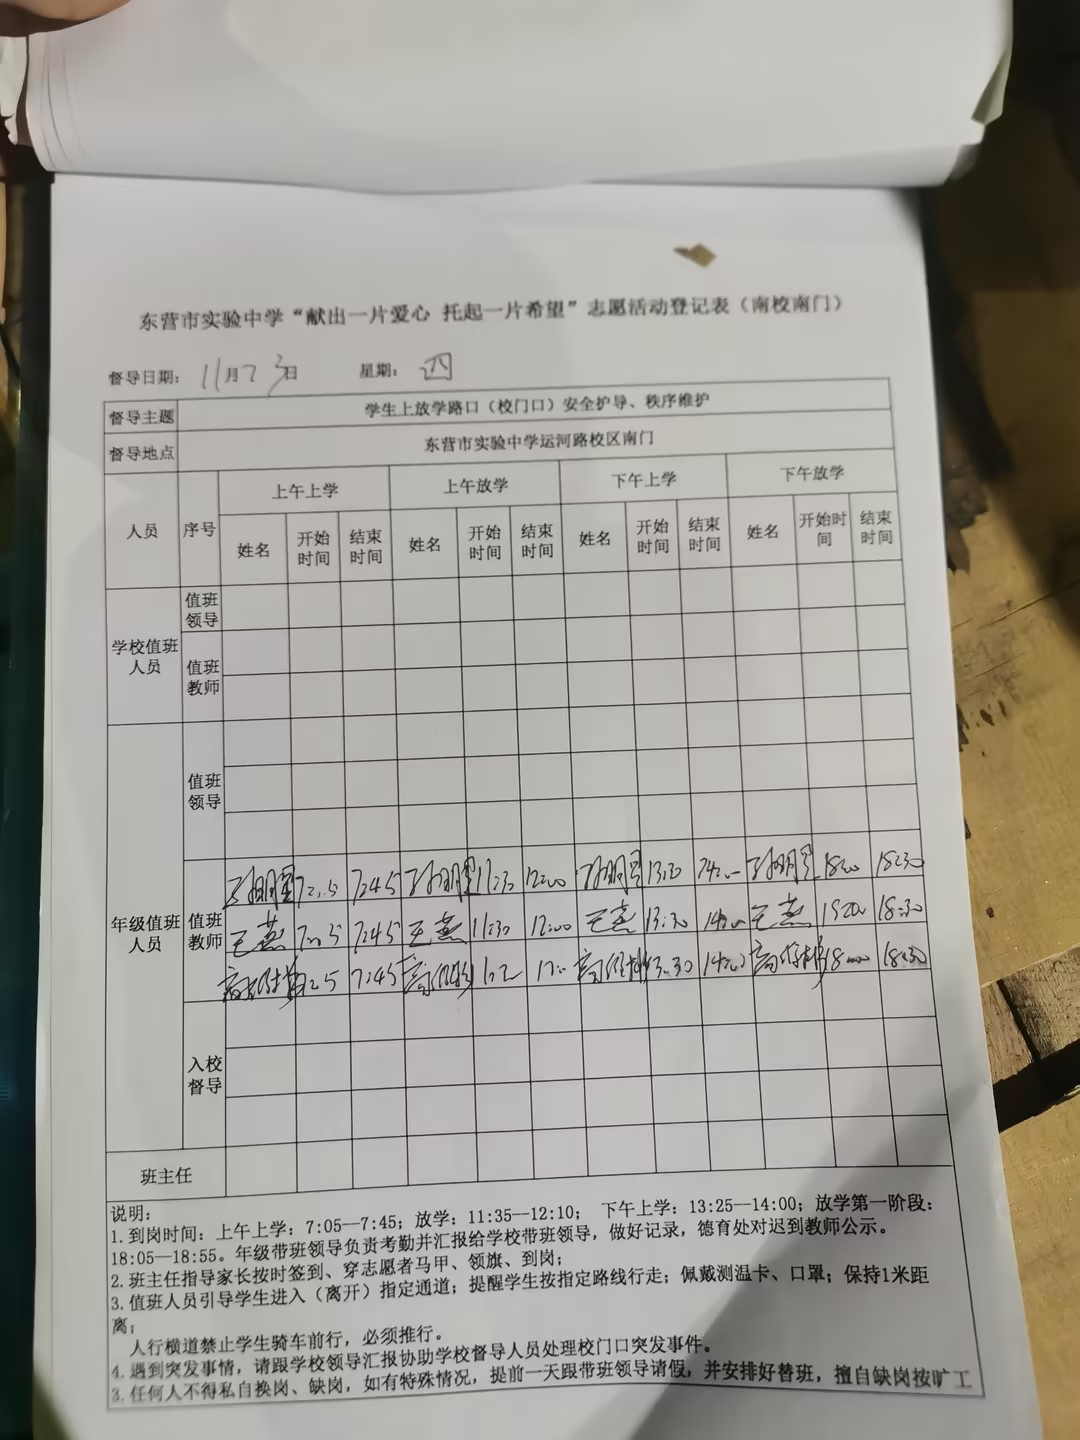 东营市实验中学“献出一片爱心 托起一片希望”志愿活动登记表（南校南门）
督导日期： 11月23日 星期： 四
督导主题 学生上放学路口（校门口）安全护导、秩序维护
督导地点 东营市实验中学运河路校区南门
人员 序号 上午上学 上午放学 下午上学 下午放学
姓名 开始时间 结束时间 姓名 开始时间 结束时间 姓名 开始时间 结束时间 姓名 开始时间 结束时间
学校值班人员 值班领导
值班教师
年级值班人员 值班领导
值班教师
7:45 12:00 13:30 18:30
王燕 7:45 王燕 11:30 12:00 王燕 13:30 14:00 王燕 18:30
7:45 13:30 18:00 18:30
入校督导
班主任
说明：
1.到岗时间：上午上学：7:05—7:45；放学：11:35—12:10； 下午上学：13:25—14:00；放学第一阶段：
18:05—18:55。年级带班领导负责考勤并汇报给学校带班领导，做好记录，德育处对迟到教师公示。
2.班主任指导家长按时签到、穿志愿者马甲、领旗、到岗；
3.值班人员引导学生进入（离开）指定通道；提醒学生按指定路线行走；佩戴测温卡、口罩；保持1米距
离；
人行横道禁止学生骑车前行，必须推行。
4.遇到突发事情，请跟学校领导汇报协助学校督导人员处理校门口突发事件。
3.任何人不得私自换岗、缺岗，如有特殊情况，提前一天跟带班领导请假，并安排好替班，擅自缺岗按旷工